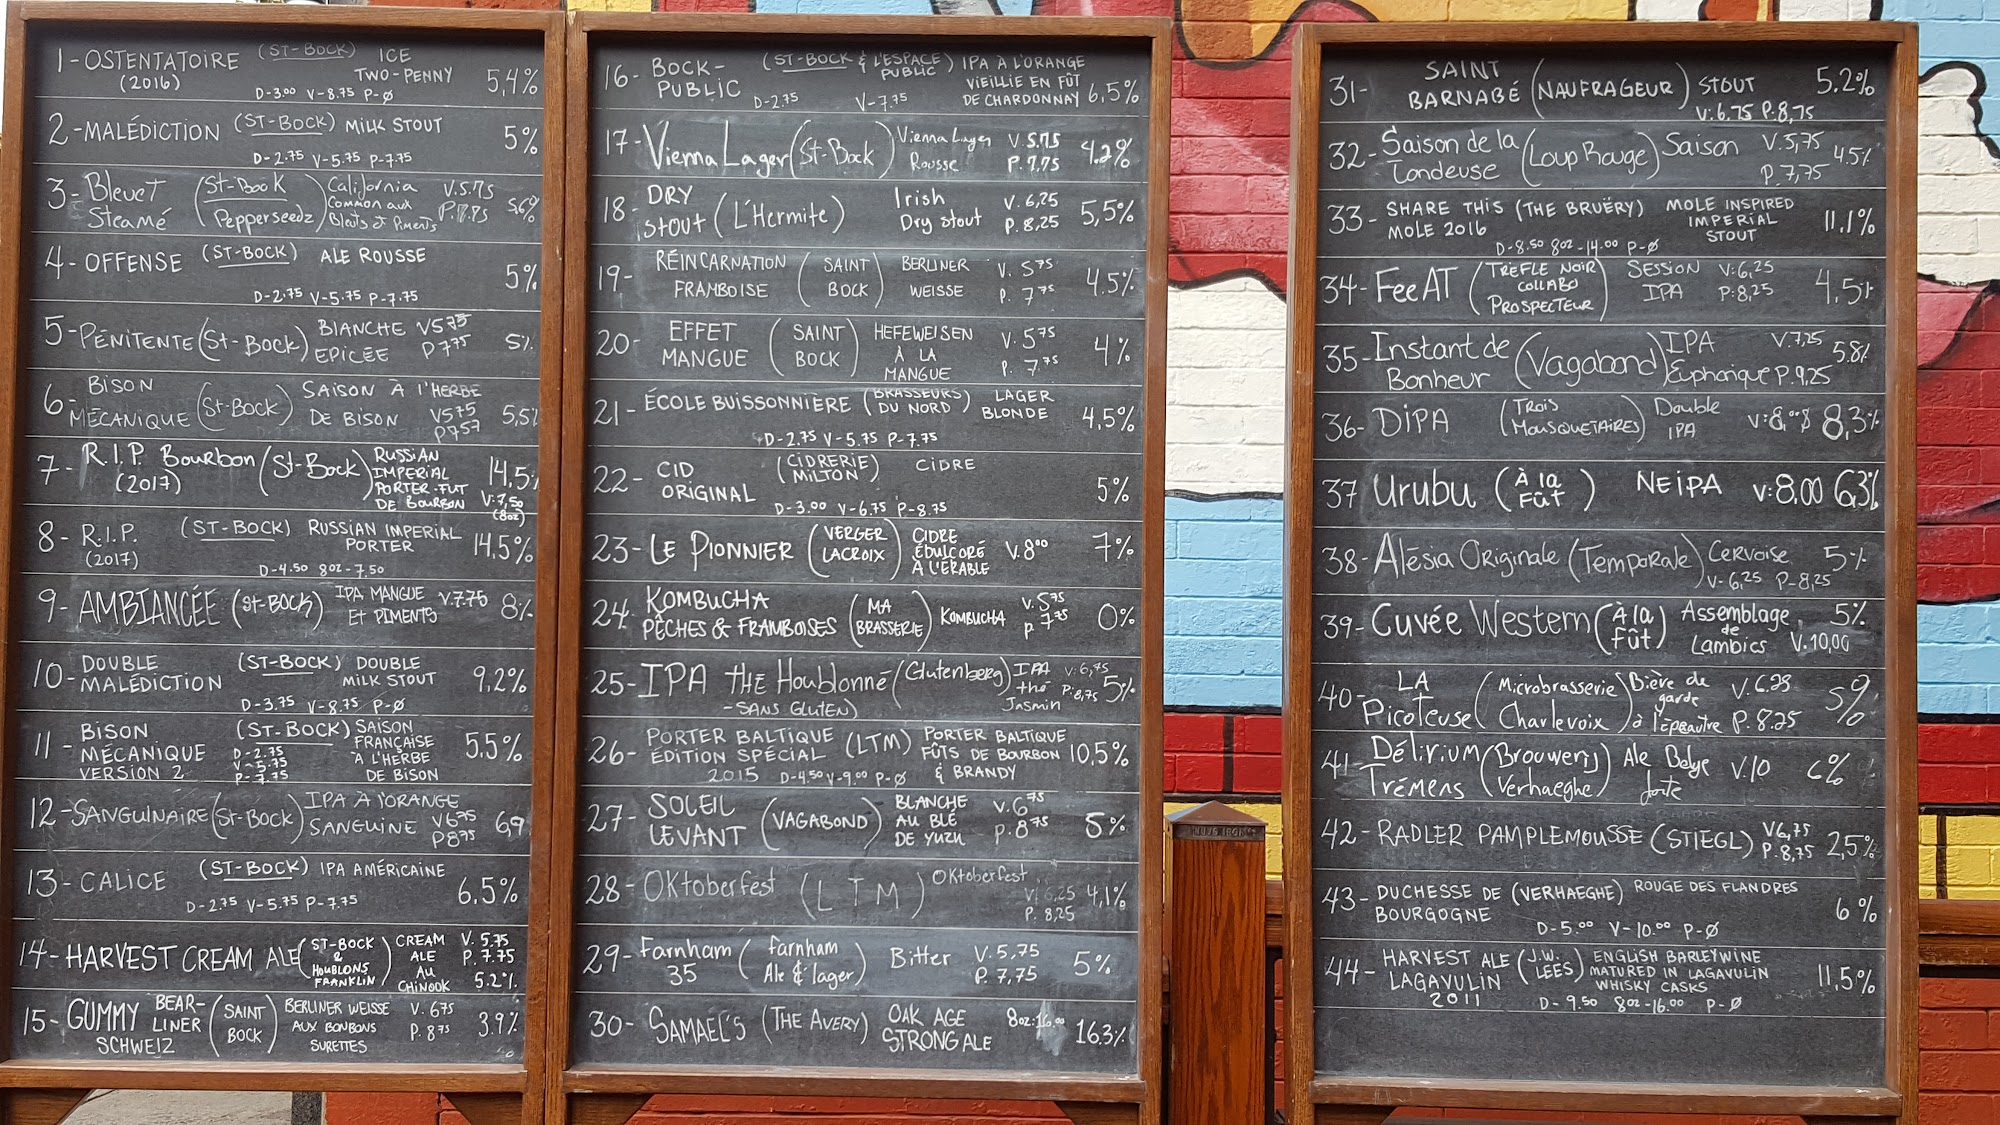 1-OSTENTATOIRE (ST-BOCK) ICE
(2016) TWO-PENNY 5,4%
D-3.00 V-8.75 P-Ø
2-MALÉDICTION (ST-BOCK) MILK STOUT 5%
D-2.75 V-5.75 P-7.75
3-Bleuet (St-Bock California V.5.75
Steamé Pepperseedz) Common aux P.7.75 5.6%
Bleuets et Piments
4-OFFENSE (ST-BOCK) ALE ROUSSE 5%
D-2.75 V-5.75 P-7.75
5-PÉNITENTE (St-BOCK) BLANCHE V575 5%
EPICÉE P775
6-BISON (St-BOCK) SAISON À l'HERBE
MÉCANIQUE DE BISON V575 5,5%
P757
7-R.I.P. Bourbon (St-Bock) RUSSIAN 14,5%
(2017) IMPERIAL
PORTER-FUT V:7,50
DE BOURBON (8oz)
8-R.I.P. (ST-BOCK) RUSSIAN IMPERIAL
(2017) PORTER 14,5%
D-4.50 8oz-7.50
9-AMBIANCÉE (St-BOCK) IPA MANGUE V.7.75 8%
ET PIMENTS
10-DOUBLE (ST-BOCK) DOUBLE
MALÉDICTION MILK STOUT 9,2%
D-3.75 V-8.75 P-Ø
11-BISON (ST-BOCK) SAISON
MÉCANIQUE D-2.75 FRANÇAISE 5.5%
VERSION 2 V-5.75 À L'HERBE
P-7.75 DE BISON
12-SANGUINAIRE (St-BOCK) IPA À l'ORANGE
SANGUINE V675 6,9
P875
13-CALICE (ST-BOCK) IPA AMÉRICAINE 6,5%
D-2.75 V-5.75 P-7.75
14-HARVEST CREAM ALE (ST-BOCK CREAM V. 5.75
& ALE P. 7.75
HOUBLONS AU 5.2%
FRANKLIN) CHINOOK
15-GUMMY BEAR- (SAINT BERLINER WEISSE V. 675
LINER BOCK) AUX BONBONS P. 875 3.9%
SCHWEIZ SURETTES
16-BOCK- (ST-BOCK & L'ESPACE IPA À L'ORANGE
PUBLIC PUBLIC) VIEILLIE EN FÛT 6,5%
D-2.75 V-7.75 DE CHARDONNAY
17-Vienna Lager (St-Bock) Vienna Lager V 5.75 4.2%
Rousse P. 7.75
18-DRY (L'Hermite) Irish V. 6,25 5,5%
Stout Dry stout P. 8,25
19-RÉINCARNATION (SAINT BERLINER V. 575 4.5%
FRAMBOISE BOCK) WEISSE P. 775
20-EFFET (SAINT HEFEWEISEN V. 575 4%
MANGUE BOCK) À LA P. 7.75
MANGUE
21-ÉCOLE BUISSONNIÈRE (BRASSEURS LAGER 4,5%
DU NORD) BLONDE
D-2.75 V-5.75 P-7.75
22-CID (CIDRERIE CIDRE
ORIGINAL MILTON) 5%
D-3.00 V-6.75 P-8.75
23-LE PIONNIER (VERGER CIDRE V.800 7%
LACROIX) ÉDULCORÉ
À L'ÉRABLE
24-KOMBUCHA (MA KOMBUCHA V.575 0%
PÊCHES & FRAMBOISES BRASSERIE) P 775
25-IPA THÉ Houblonné (Glutenberg) IPA V:6,75 5%
-SANS GLUTEN) thé P:8,75
Jasmin
26-PORTER BALTIQUE (LTM) PORTER BALTIQUE
ÉDITION SPÉCIAL FÛTS DE BOURBON 10,5%
2015 D-4.50 V-9.00 P-Ø & BRANDY
27-SOLEIL (VAGABOND) BLANCHE V.675 5%
LEVANT AU BLÉ P.875
DE YUZU
28-OKtoberfest (LTM) OKtoberfest V. 6,25 4,1%
P. 8,25
29-Farnham (farnham Bitter V. 5,75 5%
35 Ale & lager) P. 7,75
30-SAMAEL'S (THE AVERY) OAK AGE 8oz:16.00 16.3%
STRONG ALE
31-SAINT (NAUFRAGEUR) STOUT 5.2%
BARNABÉ V:6.75 P.8,75
32-Saison de la (Loup Rouge) Saison V.5,75 4.5%
Tondeuse P.7,75
33-SHARE THIS (THE BRUERY) MOLE INSPIRED
MOLE 2016 IMPERIAL 11.1%
STOUT
D-8.50 8oz-14.00 P-Ø
34-FeeAT (TREFLE NOIR SESSION V:6,25 4,5%
COLLABO IPA P:8,25
PROSPECTEUR)
35-Instant de (Vagabond) IPA V.7,25 5.8%
Bonheur Euphorique P.9,25
36-DIPA (Trois Double V:8,00$ 8,3%
Mousquetaires) IPA
37 Urubu (À la NEIPA V:8.00 6,3%
Fût)
38-Alésia Originale (Temporale) Cervoise 5%
V-6,25 P-8,25
39-Cuvée Western (À la Assemblage 5%
Fût) de
Lambics V.10,00
40-LA (Microbrasserie Bière de V.6.25 5%
Picoteuse Charlevoix) garde
à l'épeautre P.8.25
41-Délirium (Brouwerij Ale Belge V.10 6%
Trémens Verhaeghe) forte
42-RADLER PAMPLEMOUSSE (STIEGL) V6,75 2,5%
P.8,75
43-DUCHESSE DE (VERHAEGHE) ROUGE DES FLANDRES
BOURGOGNE 6%
D-5.00 V-10.00 P-Ø
44-HARVEST ALE (J.W. ENGLISH BARLEYWINE
LAGAVULIN LEES) MATURED IN LAGAVULIN 11,5%
2011 WHISKY CASKS
D-9.50 8oz-16.00 P-Ø